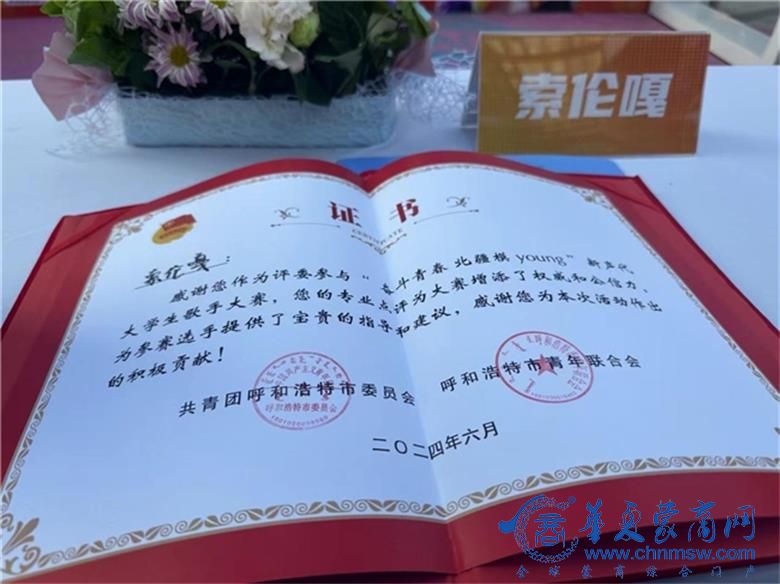 索伦嘎
证书
CERTIFICATE
索伦嘎：
感谢您作为评委参与“奋斗青春 北疆模young”新声代
大学生歌手大赛，您的专业点评为大赛增添了权威和公信力，
为参赛选手提供了宝贵的指导和建议，感谢您为本次活动作出
的积极贡献！
共青团呼和浩特市委员会 呼和浩特市青年联合会
呼和浩特市委员会
二〇二四年六月
华夏蒙商网
www.chnmsw.com
全球蒙商综合门户